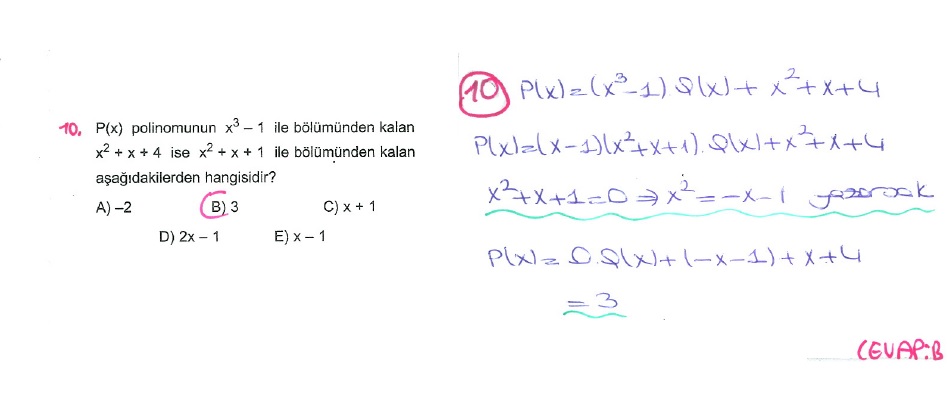 10. P(x) polinomunun x³ – 1 ile bölümünden kalan
x² + x + 4 ise x² + x + 1 ile bölümünden kalan
aşağıdakilerden hangisidir?
A) –2 B) 3 C) x + 1
D) 2x – 1 E) x – 1
10 P(x)=(x³-1) Q(x)+ x²+x+4
P(x)=(x-1)(x²+x+1).Q(x)+x²+x+4
x²+x+1=0 ⇒ x²=-x-1 yazarak
P(x)= 0.Q(x)+(-x-1)+x+4
=3
CEVAP:B